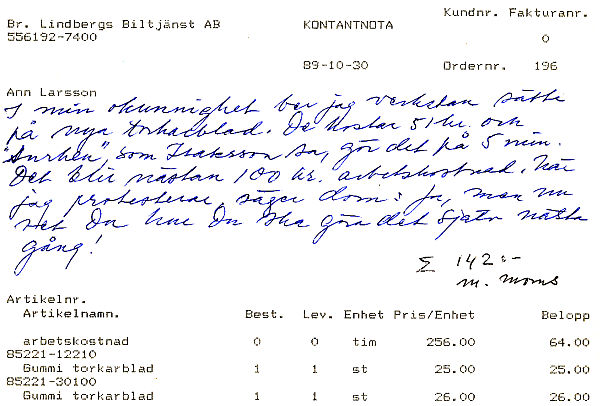 Br. Lindbergs Biltjänst AB KONTANTNOTA Kundnr. Fakturanr.
556192-7400 0
89-10-30 Ordernr. 196
Ann Larsson
I min okunnighet ber jag verkstan sätta
på nya torkarblad. De kostar 51 kr. och
"Snurken", som Isaksson sa, gör det på 5 min.
Det blir nästan 100 kr. arbetskostnad. När
jag protesterar, säger dom: Ja, men nu
vet Du hur Du ska göra det själv nästa
gång!
Σ 142:-
m. moms
Artikelnr.
Artikelnamn. Best. Lev. Enhet Pris/Enhet Belopp
arbetskostnad 0 0 tim 256.00 64.00
85221-12210
Gummi torkarblad 1 1 st 25.00 25.00
85221-30100
Gummi torkarblad 1 1 st 26.00 26.00